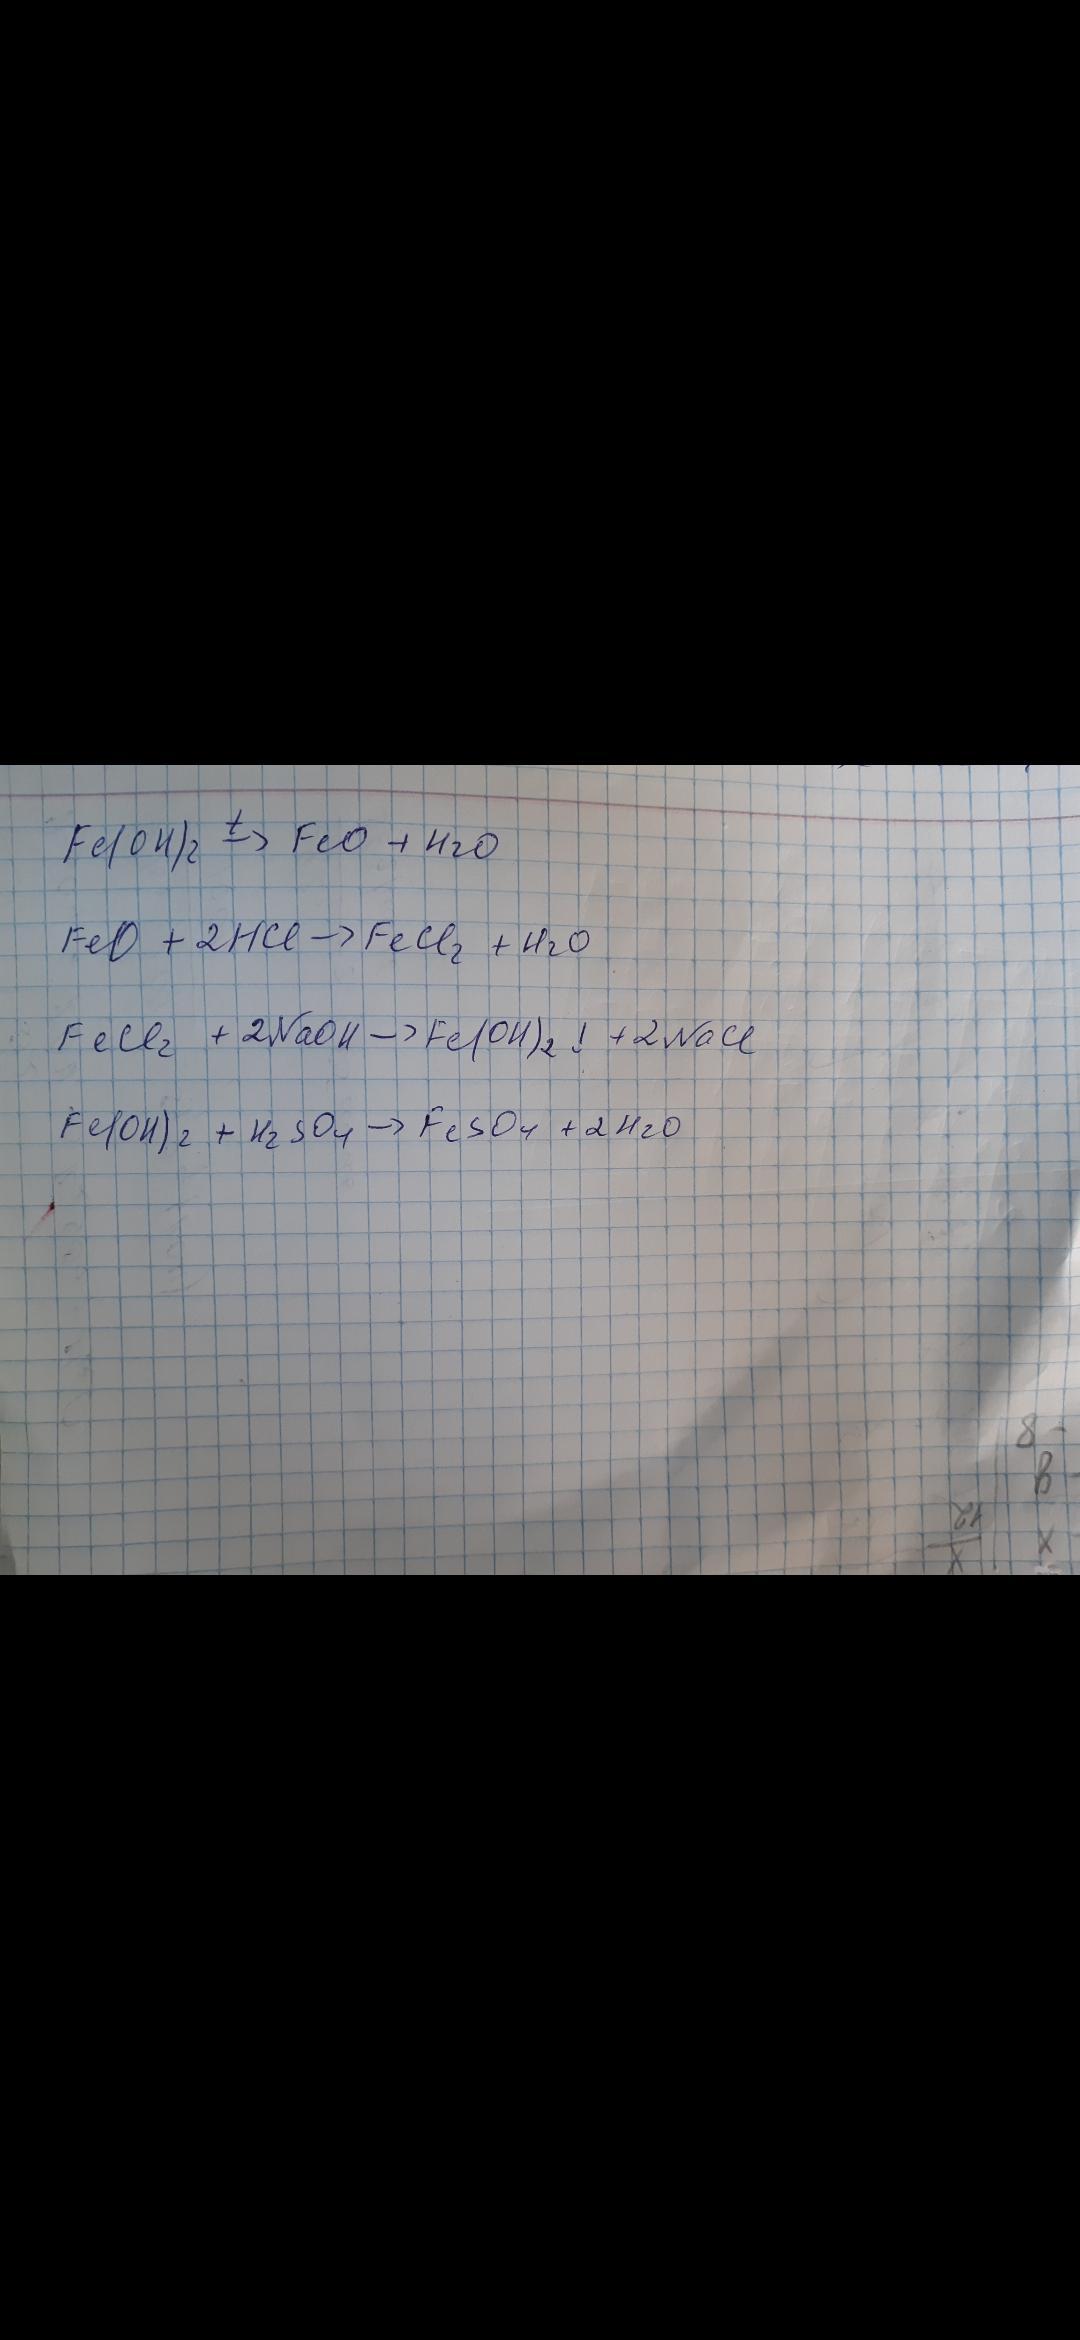 Fe(OH)₂ →ᵗ FeO + H₂O
FeO + 2HCl → FeCl₂ + H₂O
FeCl₂ + 2NaOH → Fe(OH)₂↓ + 2NaCl
Fe(OH)₂ + H₂SO₄ → FeSO₄ + 2H₂O